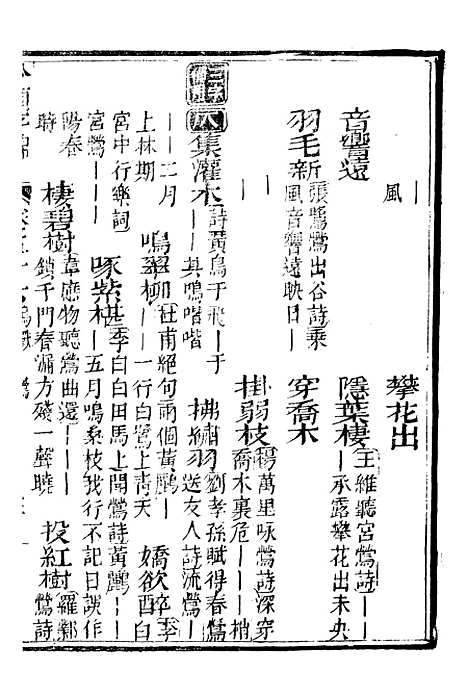 ｜風
攀花出
音響遠
隱葉棲 王維聽宮鶯詩｜｜
｜承露攀花出未央
羽毛新 張鷟鶯出谷詩乘
風音響遠映日｜｜
｜
穿喬木
｜
｜
掛弱枝 楊萬里咏鶯詩深穿
喬木裏危｜｜｜梢
三字備用
八
集灌木 詩黃鳥于飛｜于
｜｜其鳴喈喈
拂繡羽 劉孝孫賦得春鶯
送友人詩流鶯｜
｜｜二月
上林期
鳴翠柳 杜甫絕句兩個黃鸝｜
｜｜一行白鷺上青天
嬌欲醉 李白
宮中行樂詞
宮鶯｜｜｜
啄紫椹 李白白田馬上聞鶯詩黃鸝｜
｜｜五月鳴桑枝我行不記日誤作
陽春
時
棲碧樹 韋應物聽鶯曲還｜｜｜
鎖千門春漏方殘一聲曉
投紅樹 羅鄴
鶯詩